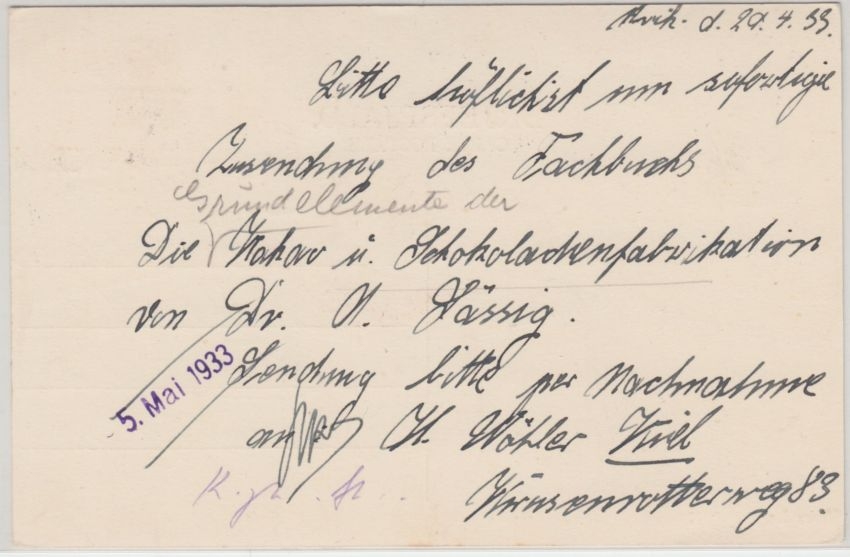 d. 29.4.33.
Bitte höflichst um sofortige
Zusendung des Fachbuchs
Grundelemente der
Die Kakao u. Schokoladenfabrikation
von Dr. H. Fässig.
5. Mai 1933
Sendung bitte per Nachnahme
an H. Wöhler Kiel
Krusenrotterweg 83.